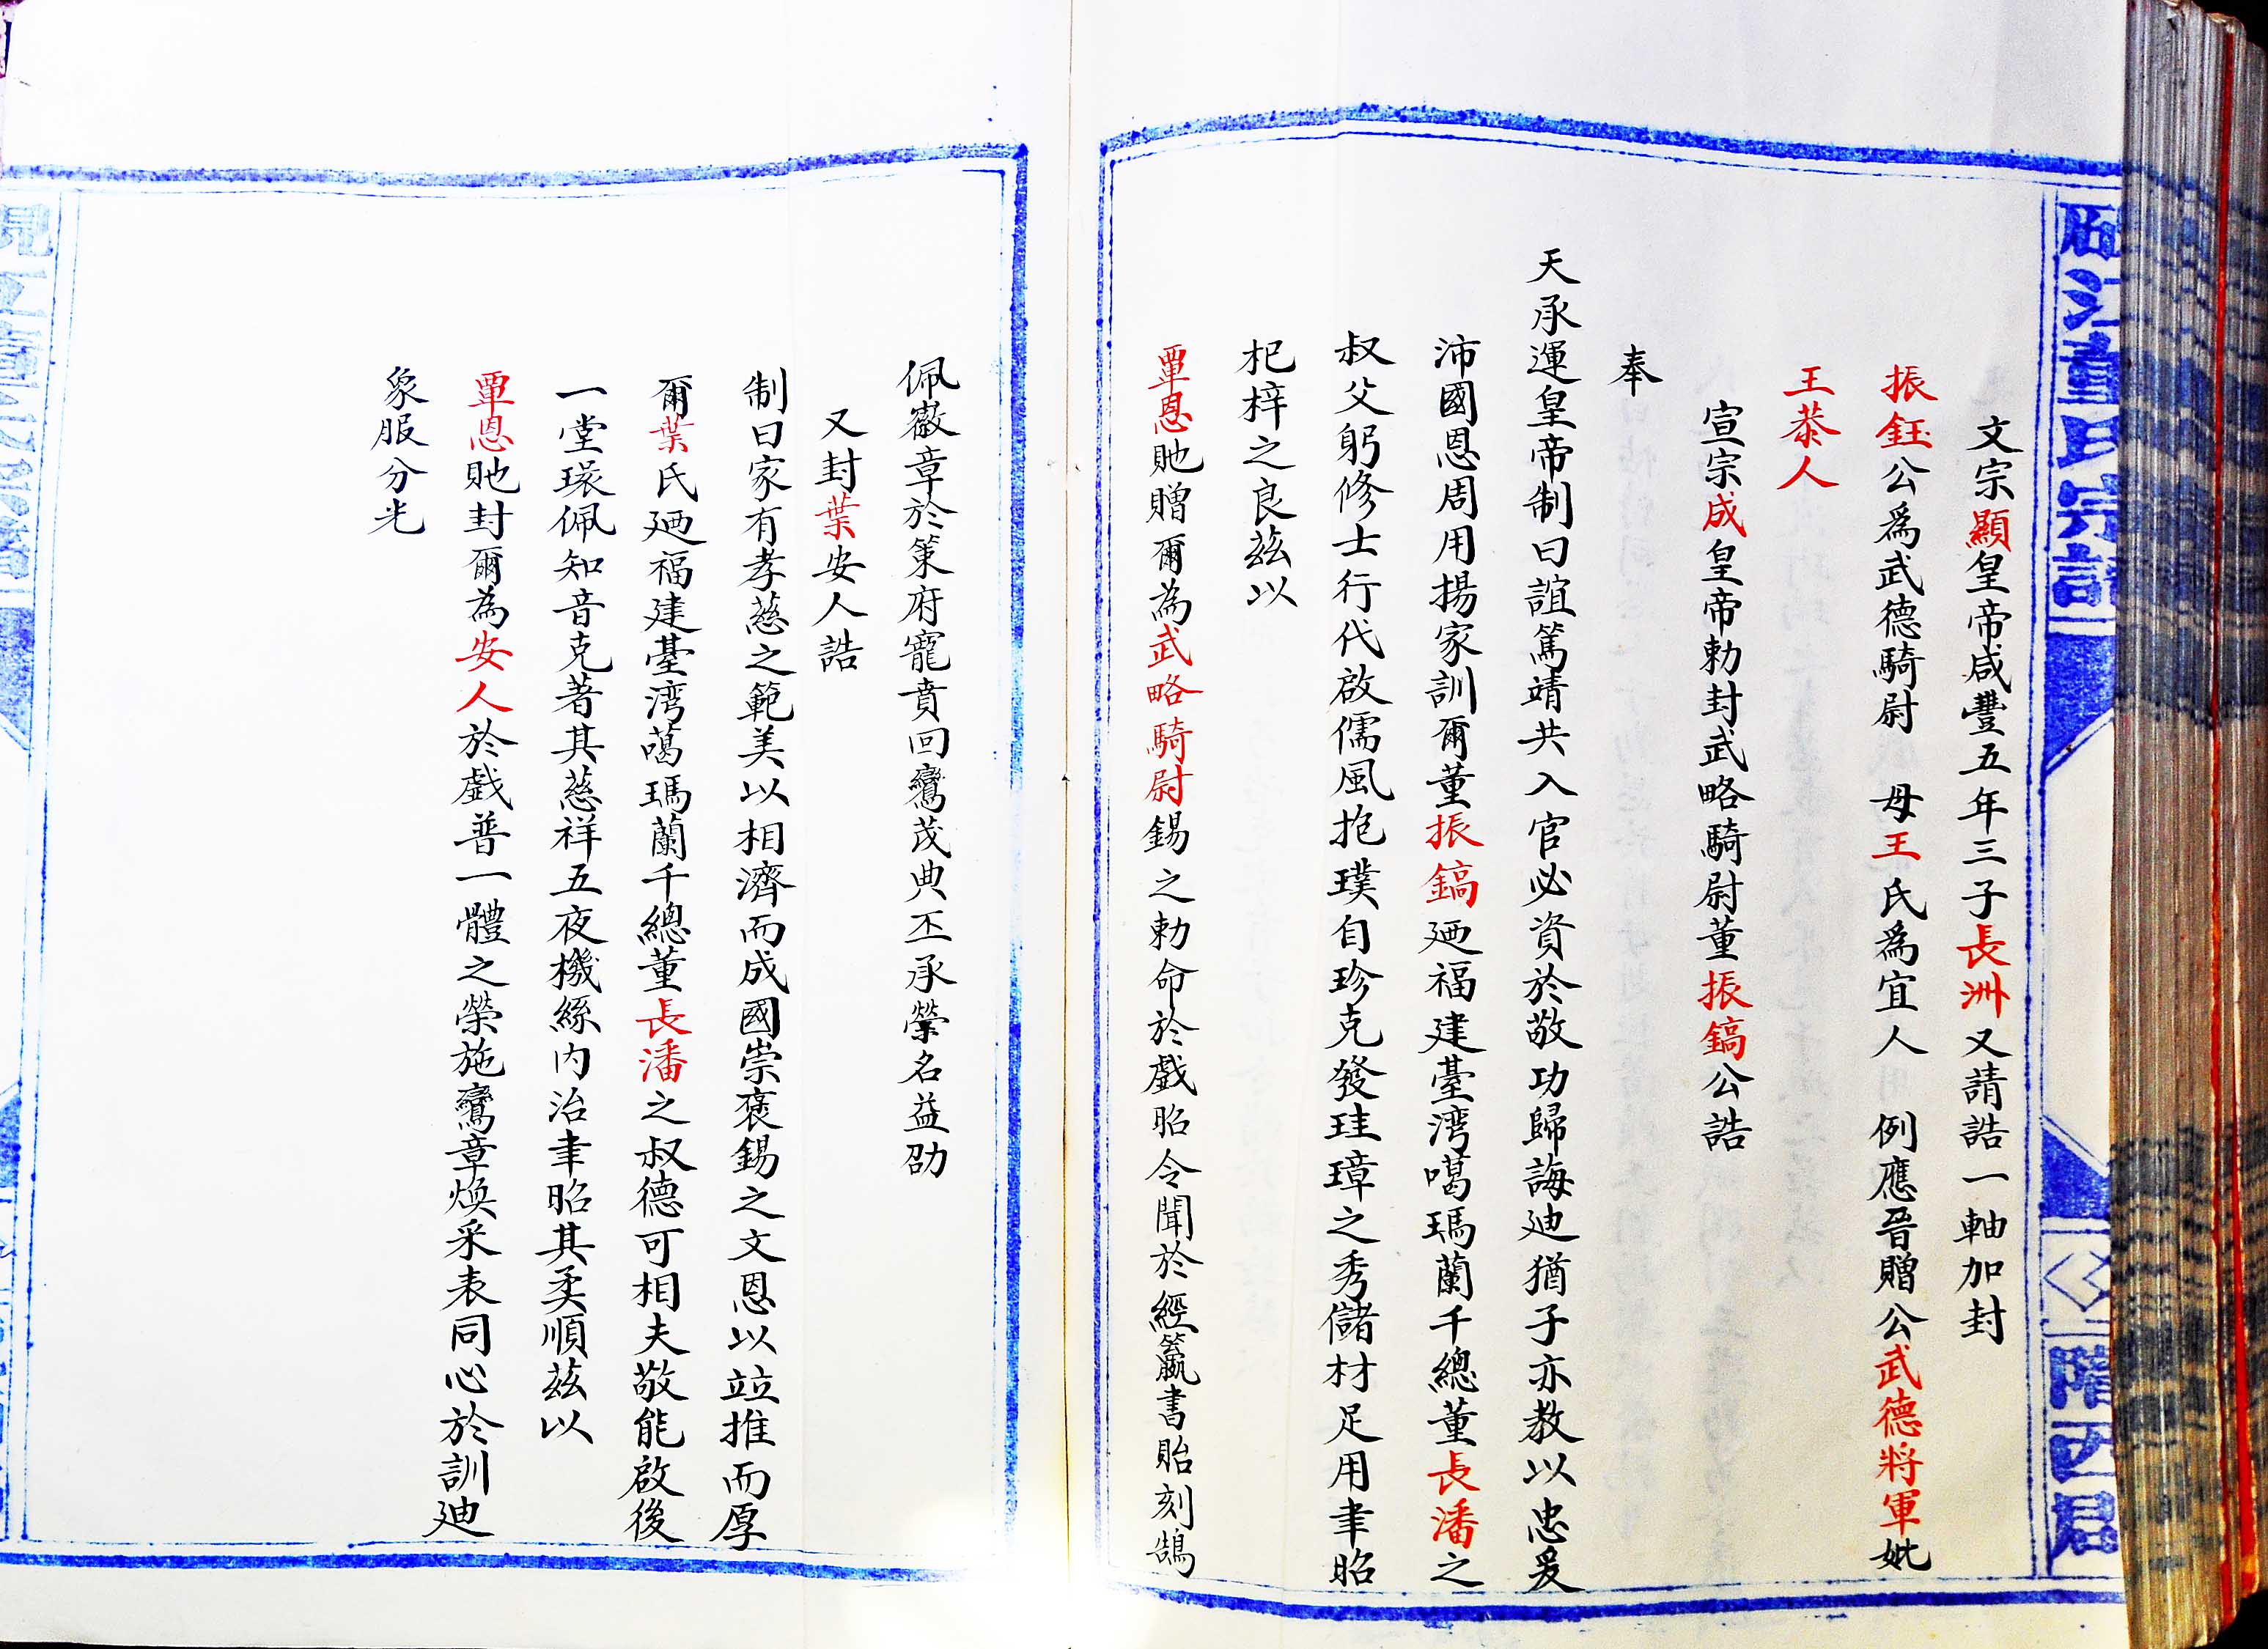 江董氏宗譜
隴西郡
文宗顯皇帝咸豐五年三子長洲又請誥一軸加封
振鈺公為武德騎尉　母王氏為宜人　例應晉贈公武德將軍妣
王恭人
宣宗成皇帝勅封武略騎尉董振鎬公誥
奉
天承運皇帝制曰誼篤靖共入官必資於敬功歸誨迪猶子亦教以忠爰
沛國恩周用揚家訓爾董振鎬廼福建臺湾噶瑪蘭千總董長潘之
叔父躬修士行代啟儒風抱璞自珍克發珪璋之秀儲材足用聿昭
杞梓之良茲以
覃恩貤贈爾為武略騎尉錫之勅命於戲昭令聞於經籯書貽刻鵠
佩徽章於策府寵賁回鸞茂典丕承榮名益劭
又封葉安人誥
制曰家有孝慈之範美以相濟而成國崇褒錫之文恩以竝推而厚
爾葉氏廼福建臺湾噶瑪蘭千總董長潘之叔德可相夫敬能啟後
一堂環佩知音克著其慈祥五夜機絲内治聿昭其柔順茲以
覃恩貤封爾為安人於戲普一體之榮施鸞章煥采表同心於訓迪
象服分光